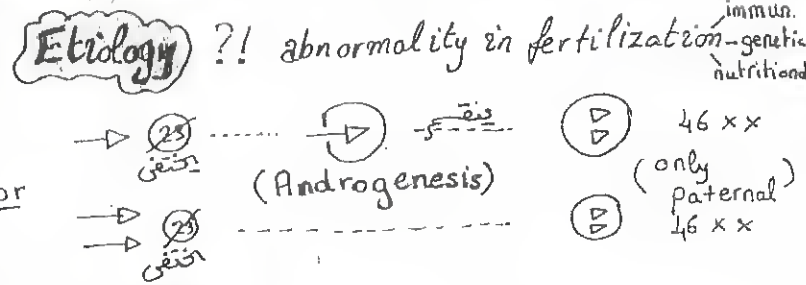 Etiology ?! abnormality in fertilization
immun.
genetic
nutritional
23 46 xx
اختفى
(Androgenesis) (only paternal)
or
23 46 xx
اختفى